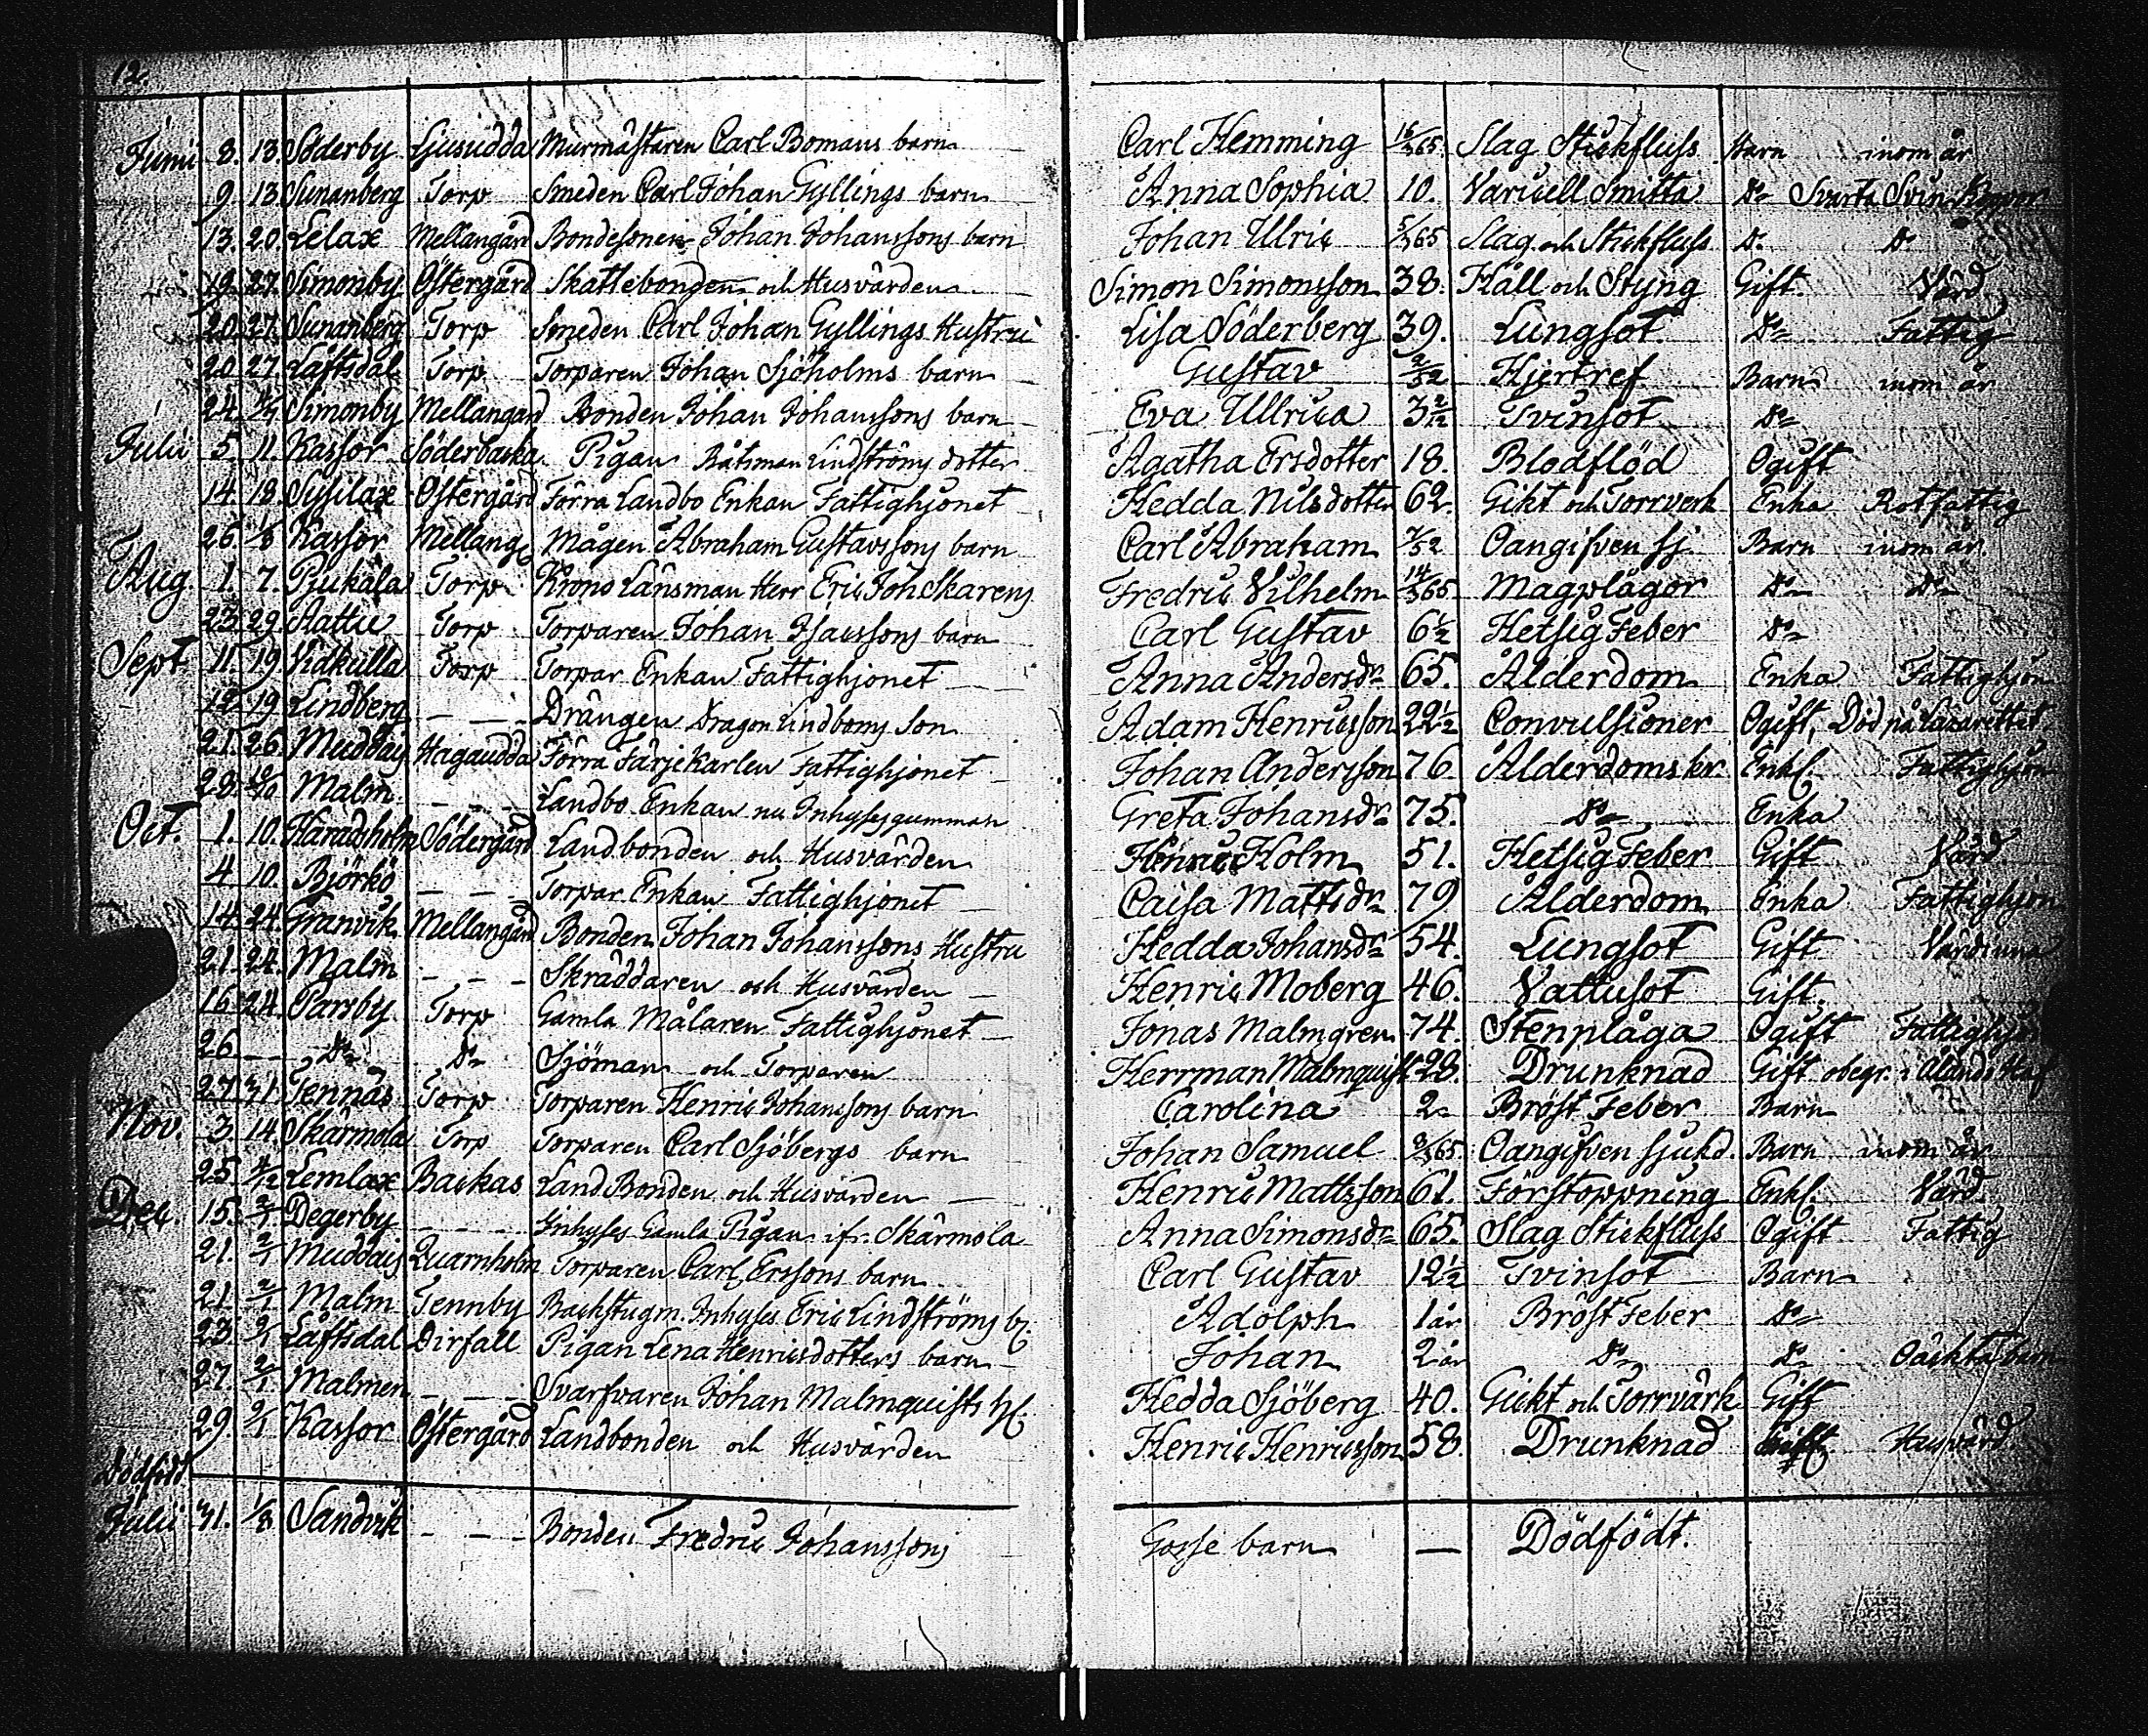 12
Junii 8. 13. Söderby Ljusudda Murmästaren Carl Bomans barn Carl Hemming 16/365 Slag Stickfluss Barn inom år
9. 13 Sunanberg Torp Smeden Carl Johan Gyllings barn Anna Sophia 10. Smitta Do Svarta
13. 20. Lelax Mellangård Bondesonen Johan Johanssons barn Johan Ulric 5/365 Slag och Stickfluss Do Do
19. 27. Simonby Östergård Skattebonden och Husvärden Simon Simonsson 38. Håll och Styng Gift. Värd
20. 27. Sunanberg Torp Smeden Carl Johan Gyllings Hustru Lisa Söderberg 39. Lungsot Do Fattig
20 27 Låftsdal Torp Torparen Johan Sjöholms barn Gustav 2/52 Barn inom år
24. 4/7 Simonby Mellangård Bonden Johan Johanssons barn Eva Ullrica 3 2/12 Tvinsot Do
Julii 5 11. Kassor Söderbacka Pigan Båtsman Lindströms dotter Agatha Ersdotter 18. Blodflöd Ogift
14. 18. Sysilax Östergård Förra Landbo Enkan Fattighjonet Hedda Nilsdotter 62. Gikt och Torrverk Enka Rotfattig
26 1/8 Kassor Mellang. Mågen Abraham Gustavssons barn Carl Abraham 7/52 Oangifven sj. Barn inom år
Aug. 1. 7. Pjukala Torp Krono Länsman Herr Eric Joh Skarens Fredric Vilhelm 14/365 Magplågor Do Do
23 29. Attu Torp Torparen Johan Isacssons barn Carl Gustav 6 1/2 Hetsig Feber Do
Sept 11. 19. Vidkulla Torp Torpar Enkan Fattighjonet Anna Andersdr 65. Ålderdom Enka Fattighjon
12. 19 Lindberg - - - Drängen Dragon Lindboms Son Adam Henricsson 22 1/2 Convulsioner Ogift, Död på Lazarettet
21. 26. Muddais Hagaudda Förra Färjekarlen Fattighjonet Johan Andersson 76. Ålderdomskr. Enkl. Fattighjon
28. Malm - - - Landbo Enkan nu Inhysesgumman Greta Johansdr 75. Do Enka
Oct. 1. 10. Haradsholm Södergård Landbonden och Husvärden Henric Holm 51. Hetsig Feber Gift Värd.
4 10. Björkö - - - Torpar Enkan Fattighjonet Caisa Mattsdr 79 Ålderdom Enka Fattighjon
14. 24. Granvik Mellangård Bonden Johan Johanssons Hustru Hedda Johansdr 54. Lungsot Gift Värdinna
21. 24. Malm - - - Skräddaren och Husvärden Henric Moberg 46. Vattusot Gift.
16. 24. Parsby. Torp Gamla Målaren Fattighjonet Jonas Malmgren 74. Stenplåga Ogift Fattighjon
26 — Do Do Sjöman och Torparen Herrman Malmquist 28. Drunknad Gift obegr. i Ålands Haf
27. 31 Tennäs Torp Torparen Henric Johanssons barn Carolina 2 Bröst Feber Barn
Nov. 3. 14. Skärmola Torp Torparen Carl Sjöbergs barn Johan Samuel 8/365. Oangifven sjukd. Barn inom år
25. 4/12 Lemlax Backas Land Bonden och Husvärden Henric Mattsson 61. Förstoppning Enkl. Värd.
Dec. 15. 2/1 Degerby - - - Inhyses Gamla Pigan ifr. Skärmola Anna Simonsdr 65. Slag Stickfluss Ogift Fattig
21. 2/1 Muddais Quarnholm Torparen Carl Erssons barn Carl Gustav 12 1/2 Tvinsot Barn
21. 2/1 Malm Tennby Backstugm. Inhyses Eric Lindströms b. Adolph 1 år Bröst Feber Do
23. 2/1 Låftsdal Dirfall Pigan Lena Henricsdotters barn Johan 2 år Do Do Oäckta barn
27. 2/1. Malmen - - - Svarfvaren Johan Malmquists H. Hedda Sjöberg 40. Gickt och Torrvärk Gift
29. 2/1 Kassor Östergård Landbonden och Husvärden Henric Henricsson 58. Drunknad Husvärd
Dödfödd.
Julii 31. 1/8 Sandvik - - - Bonden Fredric Johanssons Gosse barn — Dödfödt.